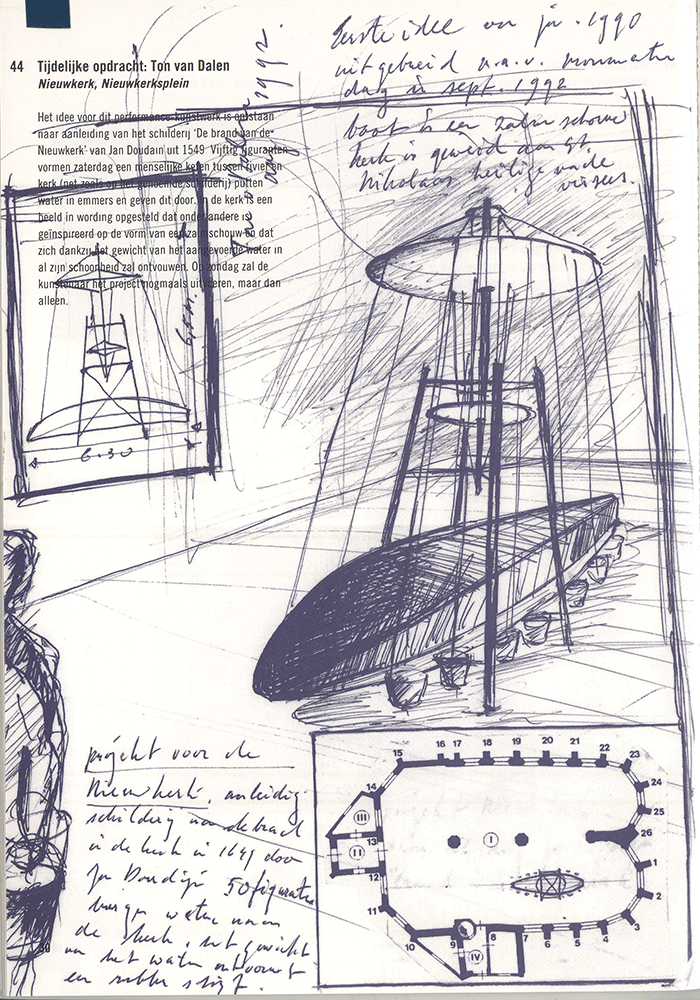 Eerste idee 1990
uitgebreid n.a.v. monumenten
dag in sept. 1992
44 Tijdelijke opdracht: Ton van Dalen
Nieuwkerk, Nieuwkerksplein
Het idee voor dit performance-kunstwerk is ontstaan
naar aanleiding van het schilderij 'De brand van de
Nieuwkerk' van Jan Doudain uit 1549. Vijftig figuranten
vormen zaterdag een menselijke keten tussen rivier en
kerk (net zoals op het genoemde schilderij) putten
water in emmers en geven dit door. In de kerk is een
beeld in wording opgesteld dat onder andere is
geïnspireerd op de vorm van een zalmschouw en dat
zich dankzij het gewicht van het aangevoerde water in
al zijn schoonheid zal ontvouwen. Op zondag zal de
kunstenaar het project nogmaals uitvoeren, maar dan
alleen.
boot is een zalm schouw
kerk is gewijd aan St.
Nikolaas heilige van de
vissers.
1992
6.30
projekt voor de
Nieuwkerk, anleiding
schilderij van de brand
in de kerk in 1549 door
50 figuranten
water naar
de kerk, het gewicht
van het water ontvouwt
een
15 16 17 18 19 20 21 22 23
14 24
III 25
13 I 26
II
12 1
2
11 3
10 9 8 7 6 5 4
IV